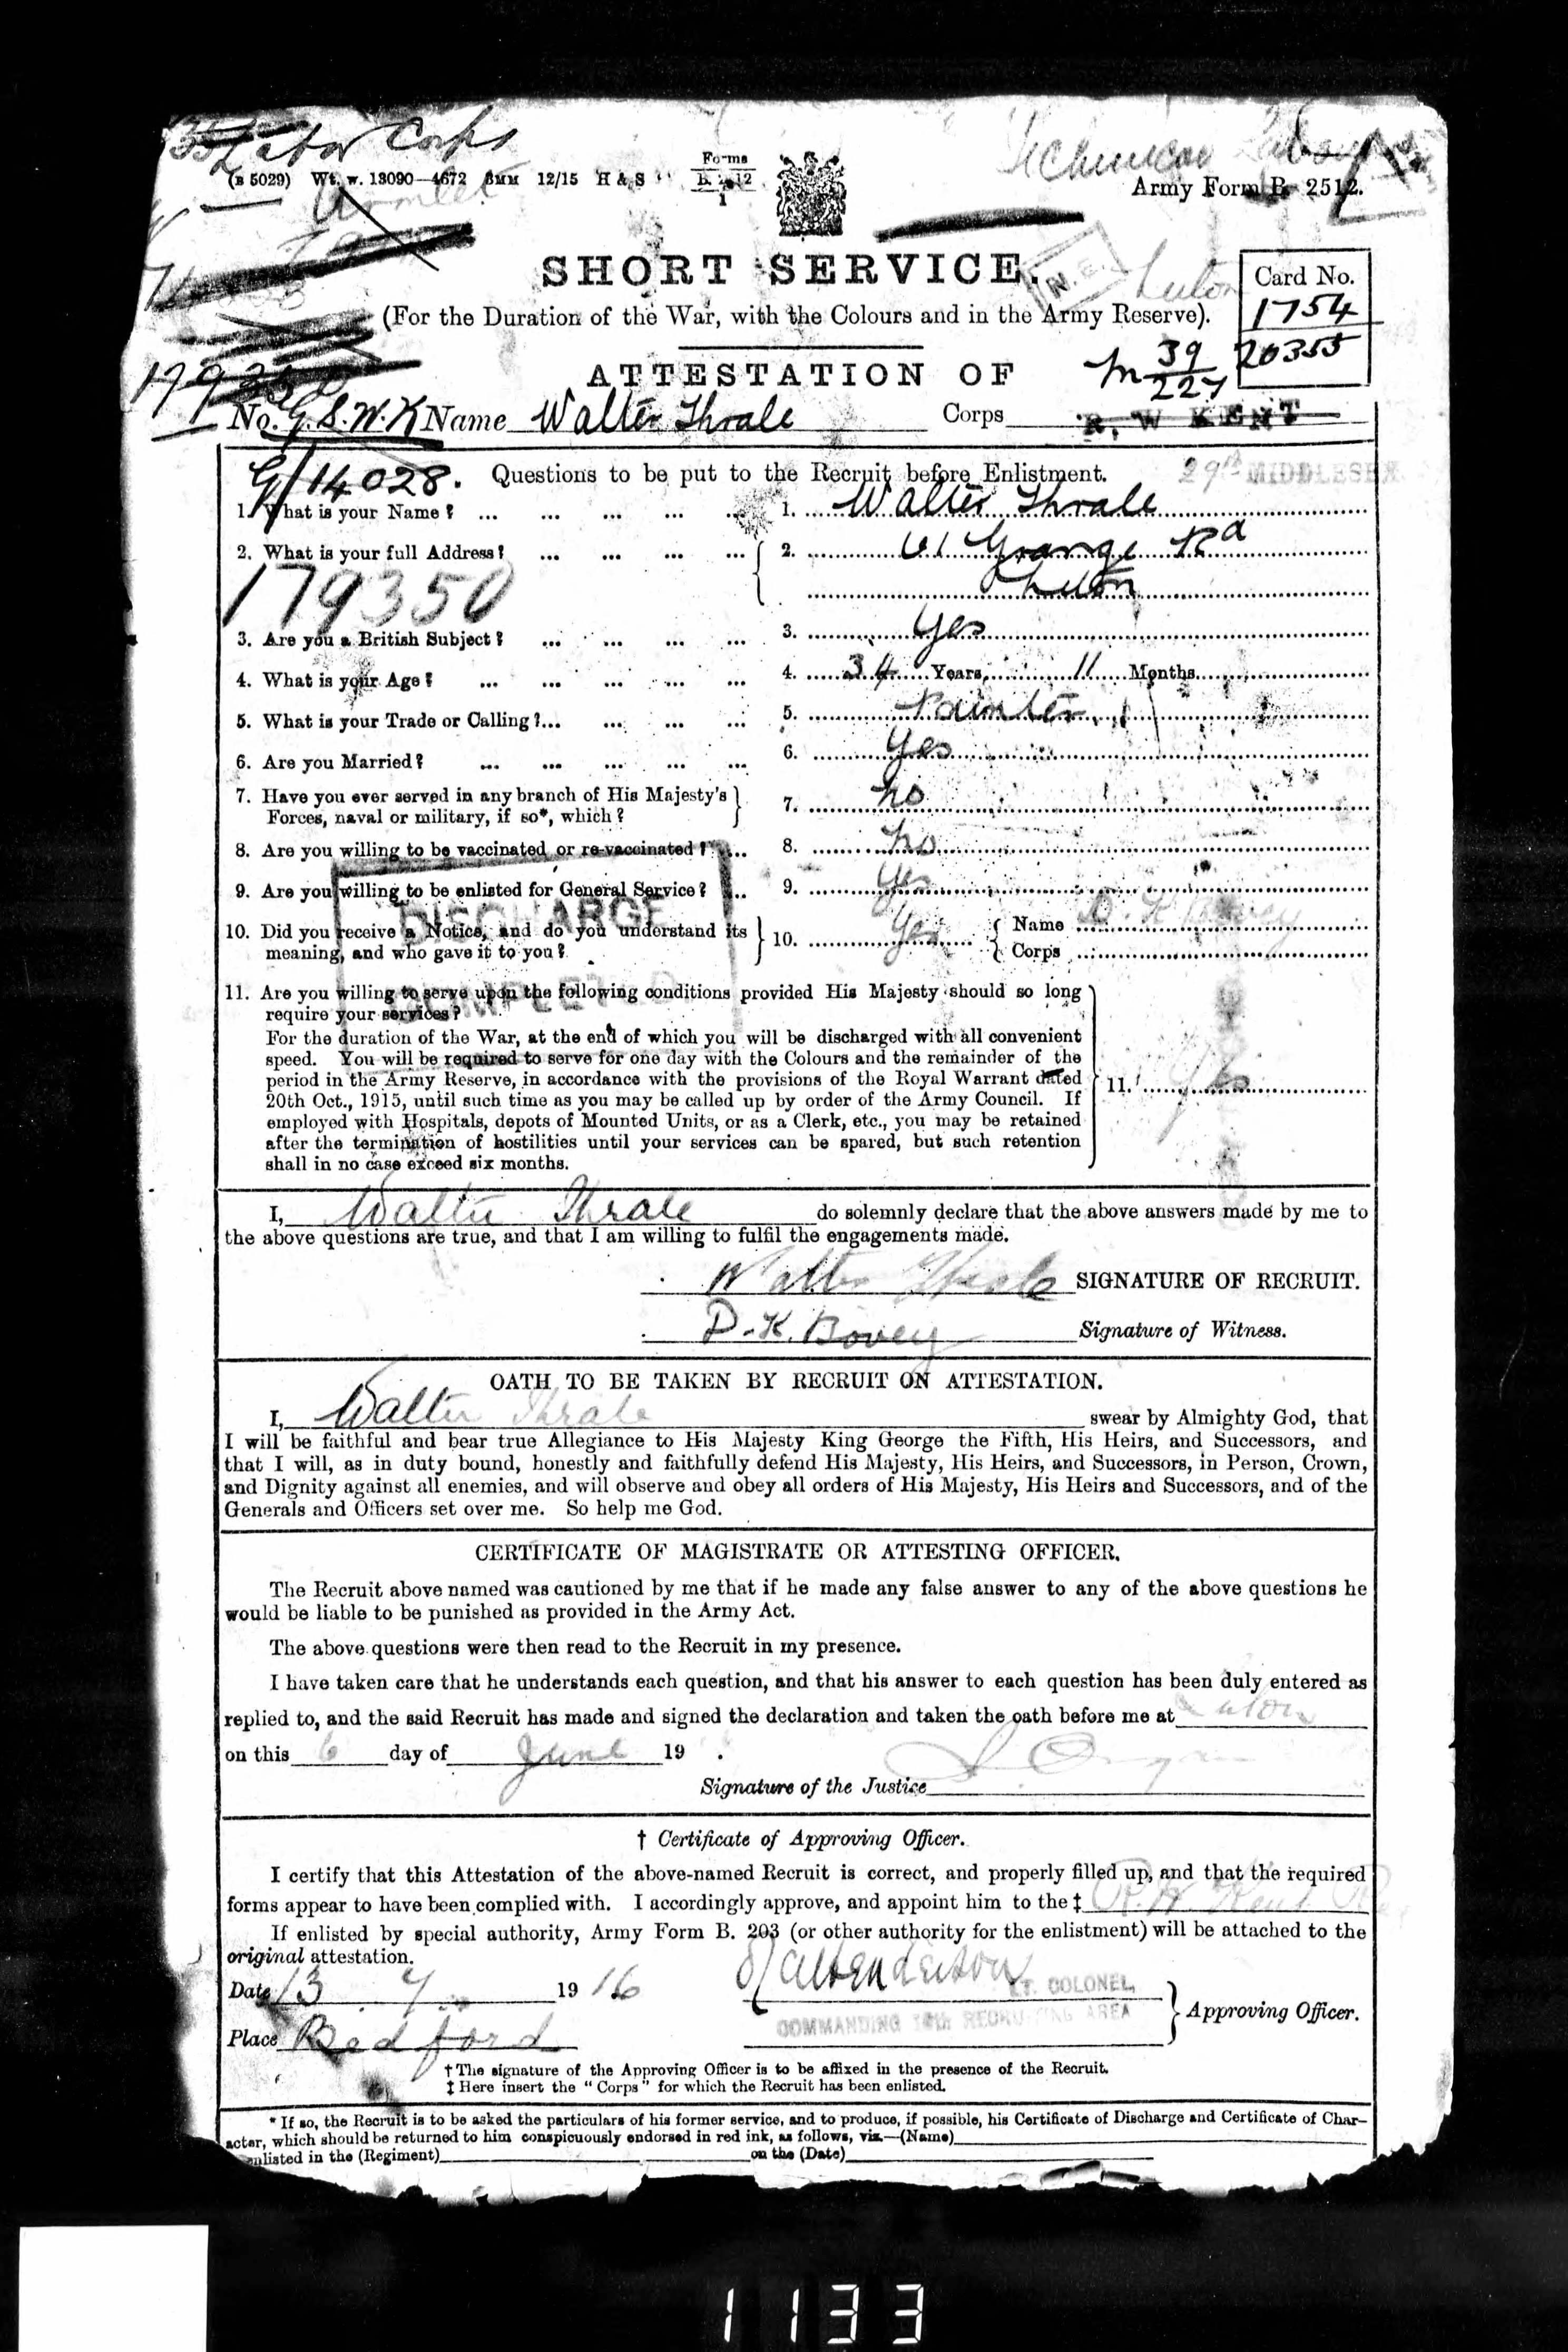 Labor Corps
Technical
(B 5029) Wt. w. 13090—4672 8MM 12/15 H & S
Forms
B. 2512
1
Army Form B. 2512.
SHORT SERVICE.
N.E.
Luton
Card No.
1754
20355
(For the Duration of the War, with the Colours and in the Army Reserve).
M 39
227
ATTESTATION OF
No. G.S.W.K Name Walter Thrale Corps R. W KENT
G/14028. Questions to be put to the Recruit before Enlistment. 29th MIDDLESEX
1. What is your Name? ... ... ... ... ... 1. Walter Thrale
2. What is your full Address? ... ... ... ... 2. 61 Grange Rd
179350 Luton
3. Are you a British Subject? ... ... ... ... 3. Yes
4. What is your Age? ... ... ... ... ... 4. 34 Years, 11 Months
5. What is your Trade or Calling?... ... ... ... 5. Painter
6. Are you Married? ... ... ... ... ... 6. Yes
7. Have you ever served in any branch of His Majesty's 7. no
Forces, naval or military, if so*, which?
8. Are you willing to be vaccinated or re-vaccinated? ... 8. no
9. Are you willing to be enlisted for General Service? ... 9. Yes
DISCHARGE
10. Did you receive a Notice, and do you understand its 10. Yes Name D. K. Bovey
meaning, and who gave it to you? Corps
COMPLETED
11. Are you willing to serve upon the following conditions provided His Majesty should so long
require your services?
For the duration of the War, at the end of which you will be discharged with all convenient
speed. You will be required to serve for one day with the Colours and the remainder of the
period in the Army Reserve, in accordance with the provisions of the Royal Warrant dated 11. Yes
20th Oct., 1915, until such time as you may be called up by order of the Army Council. If
employed with Hospitals, depots of Mounted Units, or as a Clerk, etc., you may be retained
after the termination of hostilities until your services can be spared, but such retention
shall in no case exceed six months.
I, Walter Thrale do solemnly declare that the above answers made by me to
the above questions are true, and that I am willing to fulfil the engagements made.
Walter Thrale SIGNATURE OF RECRUIT.
D. K. Bovey Signature of Witness.
OATH TO BE TAKEN BY RECRUIT ON ATTESTATION.
I, Walter Thrale swear by Almighty God, that
I will be faithful and bear true Allegiance to His Majesty King George the Fifth, His Heirs, and Successors, and
that I will, as in duty bound, honestly and faithfully defend His Majesty, His Heirs, and Successors, in Person, Crown,
and Dignity against all enemies, and will observe and obey all orders of His Majesty, His Heirs and Successors, and of the
Generals and Officers set over me. So help me God.
CERTIFICATE OF MAGISTRATE OR ATTESTING OFFICER.
The Recruit above named was cautioned by me that if he made any false answer to any of the above questions he
would be liable to be punished as provided in the Army Act.
The above questions were then read to the Recruit in my presence.
I have taken care that he understands each question, and that his answer to each question has been duly entered as
replied to, and the said Recruit has made and signed the declaration and taken the oath before me at Luton
on this 6 day of June 19 .
Signature of the Justice
† Certificate of Approving Officer.
I certify that this Attestation of the above-named Recruit is correct, and properly filled up, and that the required
forms appear to have been complied with. I accordingly approve, and appoint him to the ‡ R. W. Kent
If enlisted by special authority, Army Form B. 203 (or other authority for the enlistment) will be attached to the
original attestation.
Date 13 . 7 . 1916
LT. COLONEL,
Approving Officer.
COMMANDING RECRUITING AREA
Place Bedford
† The signature of the Approving Officer is to be affixed in the presence of the Recruit.
‡ Here insert the "Corps" for which the Recruit has been enlisted.
* If so, the Recruit is to be asked the particulars of his former service, and to produce, if possible, his Certificate of Discharge and Certificate of Char-
acter, which should be returned to him conspicuously endorsed in red ink, as follows, viz.—(Name)
enlisted in the (Regiment) on the (Date)
1133